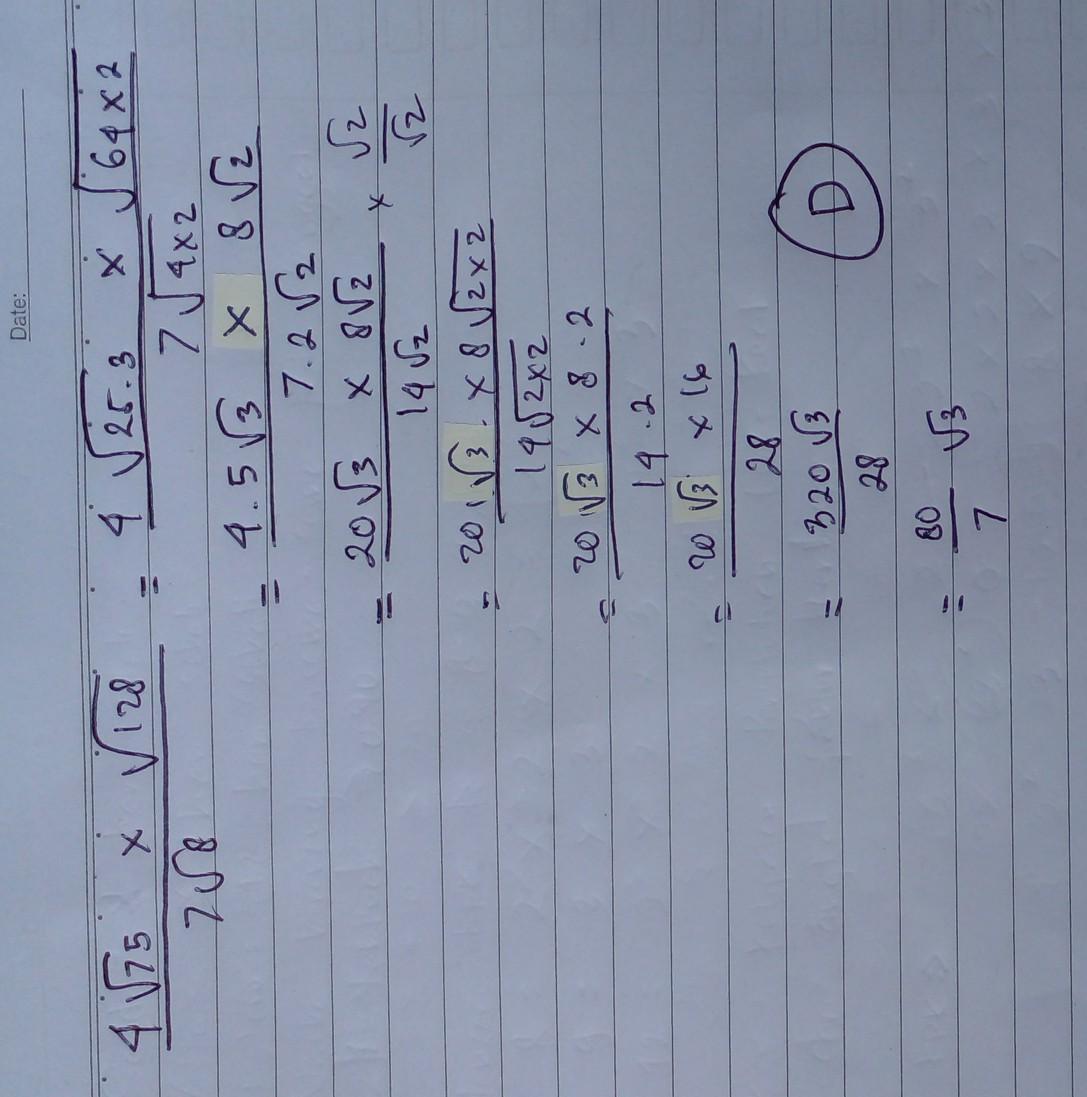 Date:
4√75 × √128 / 7√8 = 4√25.3 × √64×2 / 7√4×2
= 4.5√3 × 8√2 / 7.2√2
= 20√3 × 8√2 / 14√2 × √2 / √2
= 20√3 × 8√2×2 / 14√2×2
= 20√3 × 8.2 / 14.2
= 20√3 × 16 / 28
= 320√3 / 28
D
= 80 / 7 √3